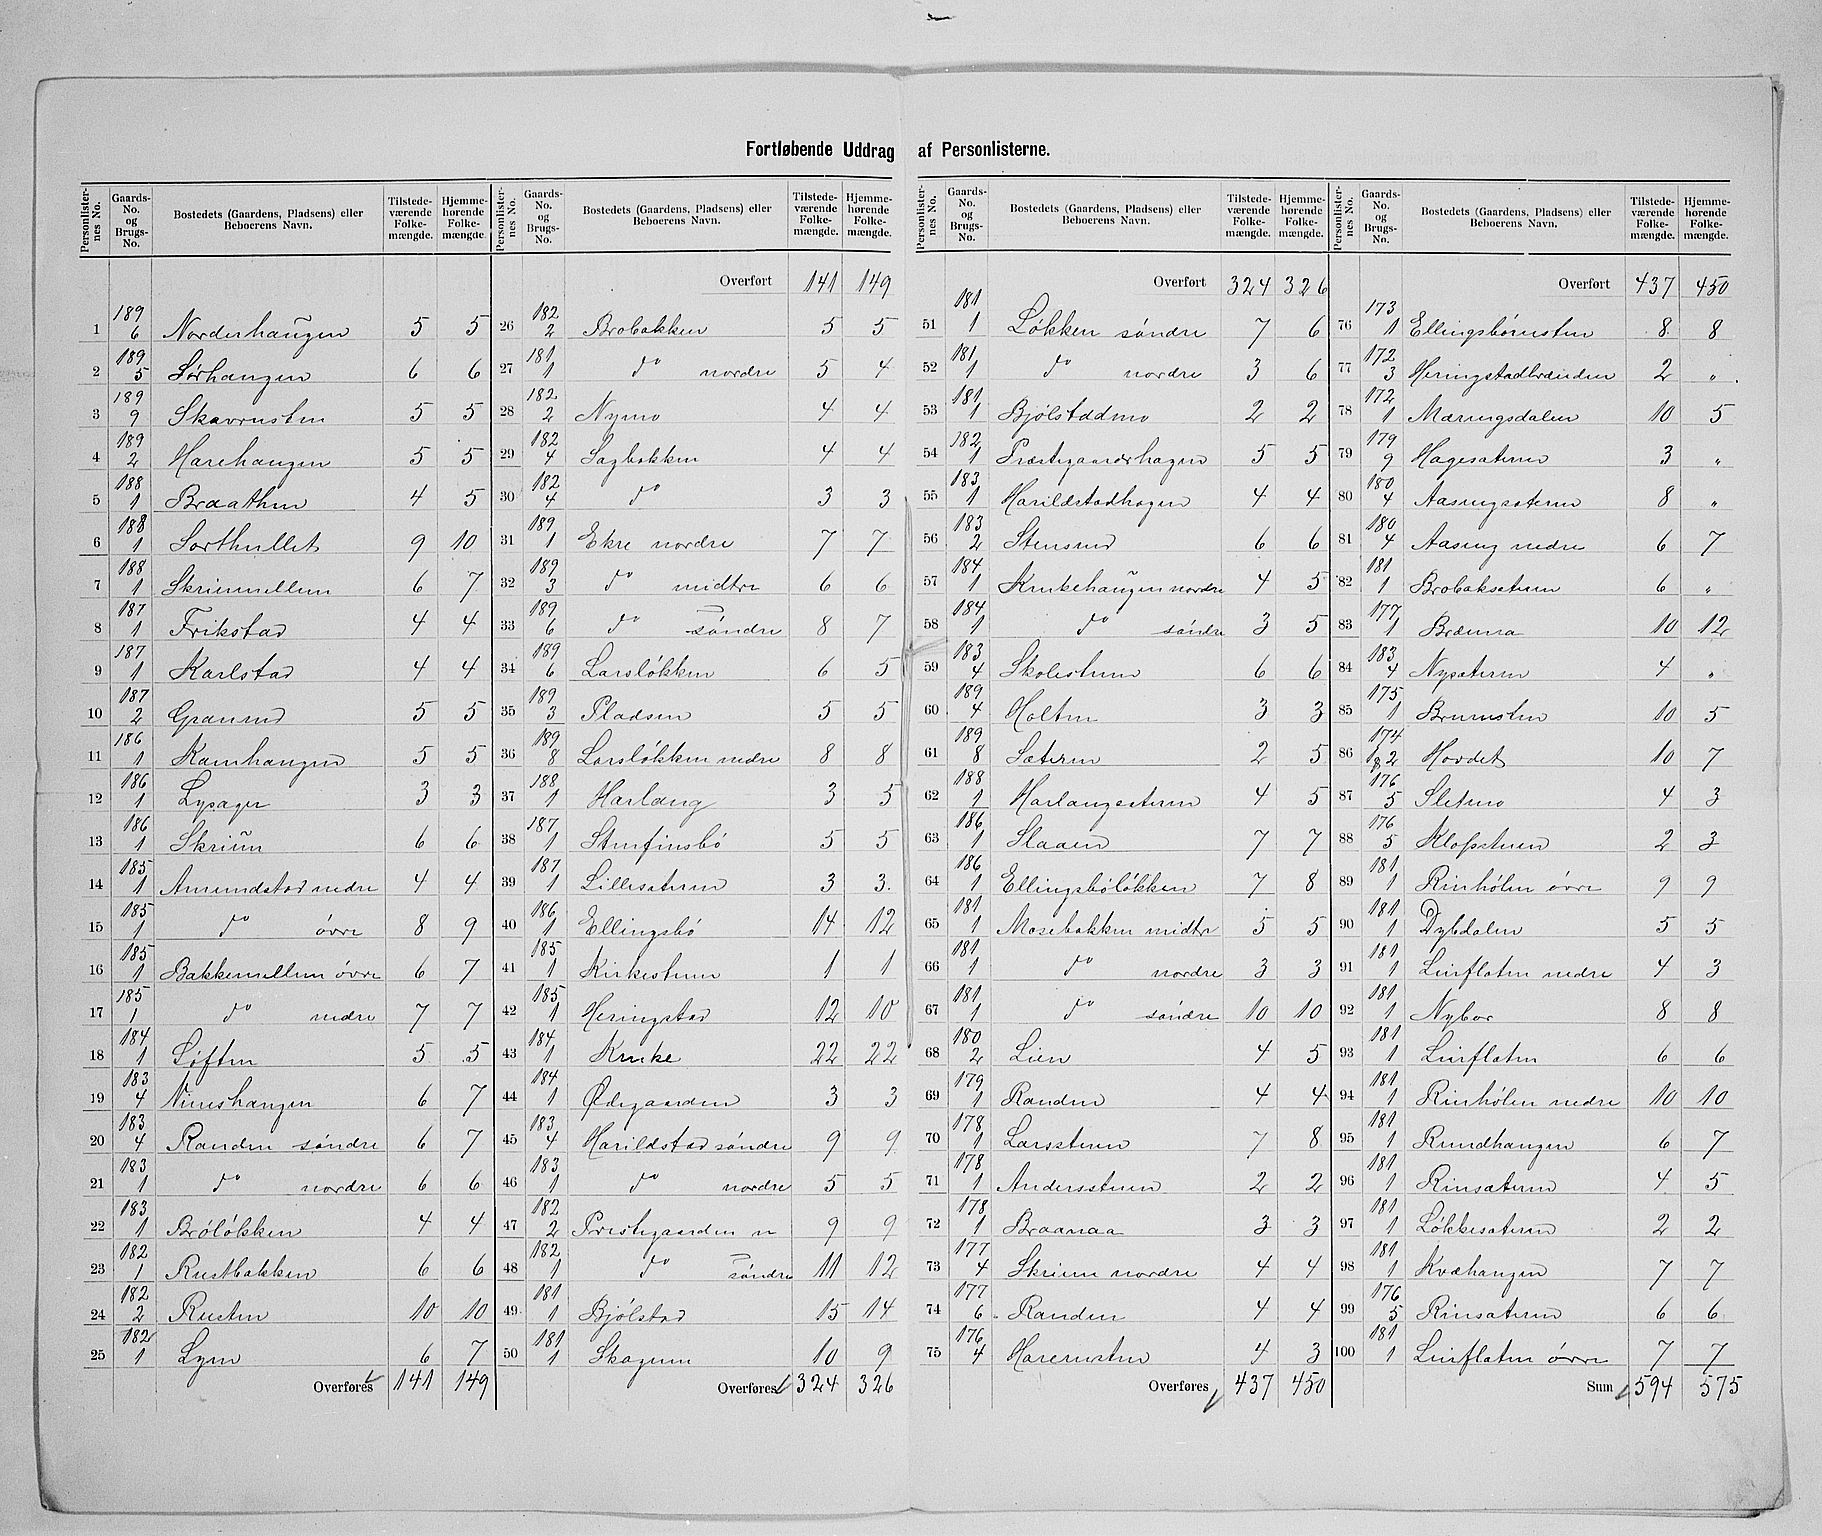 Fortløbende Uddrag af Personlisterne.
Personlisternes No. | Gaards-No. og Brugs-No. | Bostedets (Gaardens, Pladsens) eller Beboerens Navn. | Tilstedeværende Folkemængde. | Hjemmehørende Folkemængde.
1 | 189 6 | Norderhaugen | 5 | 5
2 | 189 5 | Sørhaugen | 6 | 6
3 | 189 9 | Skavrusten | 5 | 5
4 | 189 2 | Harehaugen | 5 | 5
5 | 188 1 | Braathen | 4 | 5
6 | 188 1 | Sorthullet | 9 | 10
7 | 188 1 | Skriumellem | 6 | 7
8 | 187 1 | Frikstad | 4 | 4
9 | 187 1 | Karlstad | 4 | 4
10 | 187 2 | Gransrud | 5 | 5
11 | 186 1 | Kamhaugen | 5 | 5
12 | 186 1 | Lysager | 3 | 3
13 | 186 1 | Skriun | 6 | 6
14 | 185 1 | Amundstad nedre | 4 | 4
15 | 185 1 | do øvre | 8 | 9
16 | 185 1 | Bakkemellem øvre | 6 | 7
17 | 185 1 | do nedre | 7 | 7
18 | 184 1 | Loften | 5 | 5
19 | 183 4 | Nineshaugen | 6 | 7
20 | 183 4 | Randen søndre | 6 | 7
21 | 183 1 | do nordre | 6 | 6
22 | 183 1 | Broløkken | 4 | 4
23 | 182 1 | Rustbakken | 6 | 6
24 | 182 2 | Rusten | 10 | 10
25 | 182 1 | Lyen | 6 | 7
Overføres 141 149
Personlisternes No. | Gaards-No. og Brugs-No. | Bostedets (Gaardens, Pladsens) eller Beboerens Navn. | Tilstedeværende Folkemængde. | Hjemmehørende Folkemængde.
Overført 141 149
26 | 182 2 | Brobakken | 5 | 5
27 | 181 1 | do nordre | 5 | 4
28 | 182 2 | Nymo | 4 | 4
29 | 182 4 | Sagbakken | 4 | 4
30 | 182 4 | do | 3 | 3
31 | 189 1 | Ekre nordre | 7 | 7
32 | 189 3 | do midtre | 6 | 6
33 | 189 6 | do søndre | 8 | 7
34 | 189 6 | Larsløkken | 6 | 5
35 | 189 3 | Pladsen | 5 | 5
36 | 189 8 | Larsløkken nedre | 8 | 8
37 | 188 1 | Harlaug | 3 | 5
38 | 187 1 | Stenfinsbø | 5 | 5
39 | 187 1 | Lillesæteren | 3 | 3
40 | 186 1 | Ellingsbø | 14 | 12
41 | 185 1 | Kirkestuen | 1 | 1
42 | 185 1 | Heringstad | 12 | 10
43 | 184 1 | Kruke | 22 | 22
44 | 184 1 | Ødegaarden | 3 | 3
45 | 183 4 | Harildstad søndre | 9 | 9
46 | 183 1 | do nordre | 5 | 5
47 | 182 2 | Prestegaarden n | 9 | 9
48 | 182 1 | do søndre | 11 | 12
49 | 181 1 | Bjølstad | 15 | 14
50 | 181 1 | Skogum | 10 | 9
Overføres 324 326
Personlisternes No. | Gaards-No. og Brugs-No. | Bostedets (Gaardens, Pladsens) eller Beboerens Navn. | Tilstedeværende Folkemængde. | Hjemmehørende Folkemængde.
Overført 324 326
51 | 181 1 | Løkken søndre | 7 | 6
52 | 181 1 | do nordre | 3 | 6
53 | 181 1 | Bjølstadmo | 2 | 2
54 | 182 1 | Præstegaardshagen | 5 | 5
55 | 183 1 | Harildstadhagen | 4 | 4
56 | 183 2 | Stensrud | 6 | 6
57 | 184 1 | Krukehaugen nordre | 4 | 5
58 | 184 1 | do søndre | 3 | 5
59 | 183 4 | Skolestuen | 6 | 6
60 | 189 4 | Holten | 3 | 3
61 | 189 8 | Sæteren | 2 | 5
62 | 188 1 | Harlaugsæteren | 4 | 5
63 | 186 1 | Slaaen | 7 | 7
64 | 186 1 | Ellingsbøløkken | 7 | 8
65 | 181 1 | Mosebakken midtre | 5 | 5
66 | 181 1 | do nordre | 3 | 3
67 | 181 1 | do søndre | 10 | 10
68 | 180 2 | Lien | 4 | 5
69 | 179 1 | Randen | 4 | 4
70 | 178 1 | Larsstuen | 7 | 8
71 | 178 1 | Andersstuen | 2 | 2
72 | 178 1 | Braanaa | 3 | 3
73 | 177 4 | Skriun nordre | 4 | 4
74 | 177 6 | Randen | 4 | 4
75 | 176 4 | Harerusten | 4 | 3
Overføres 437 450
Personlisternes No. | Gaards-No. og Brugs-No. | Bostedets (Gaardens, Pladsens) eller Beboerens Navn. | Tilstedeværende Folkemængde. | Hjemmehørende Folkemængde.
Overført 437 450
76 | 173 1 | Ellingsbørusten | 8 | 8
77 | 172 3 | Heringstadbrænden | 2 | "
78 | 172 1 | Mæringsdalen | 10 | 5
79 | 179 9 | Hagesæteren | 3 | "
80 | 180 4 | Aasengsæteren | 8 | "
81 | 180 4 | Aaseng nedre | 6 | 7
82 | 181 1 | Brobaksæteren | 6 | "
83 | 177 1 | Brænna | 10 | 12
84 | 183 4 | Nysæteren | 4 | "
85 | 175 1 | Brurusten | 10 | 5
86 | 174 1&2 | Hovdet | 10 | 7
87 | 176 5 | Sletmo | 4 | 3
88 | 176 5 | Klopstuen | 2 | 3
89 | 181 1 | Rinhølen øvre | 9 | 9
90 | 181 1 | Dybdalen | 5 | 5
91 | 181 1 | Leirflaten nedre | 4 | 3
92 | 181 1 | Nybor | 8 | 8
93 | 181 1 | Leirflaten | 6 | 6
94 | 181 1 | Rinhølen nedre | 10 | 10
95 | 181 1 | Rundhaugen | 6 | 7
96 | 181 1 | Rinsæteren | 4 | 5
97 | 181 1 | Løkkesæteren | 2 | 2
98 | 181 1 | Kvæhaugen | 7 | 7
99 | 176 5 | Rinsæteren | 6 | 6
100 | 181 1 | Leirflaten øvre | 7 | 7
Sum 594 575